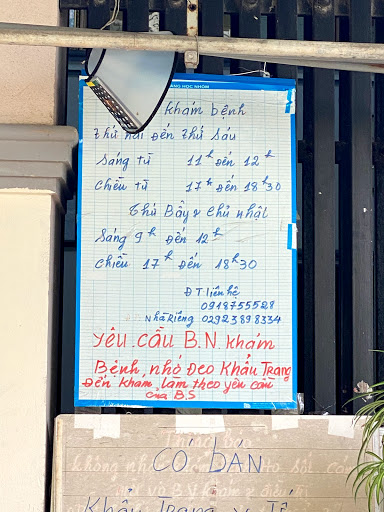 khám bệnh
thứ hai đến thứ sáu
sáng từ 11h đến 12h
chiều từ 17h đến 18h30
thứ Bảy & chủ nhật
sáng 9h đến 12h
chiều 17h đến 18h30
ĐT liên hệ
0918755528
Nhà Riêng 02923898334
yêu cầu B.N. khám
Bệnh, nhớ Đeo Khẩu Trang
Đến khám, làm theo yêu cầu
của B.S
CÓ BÁN
Khẩu Trang y Tế